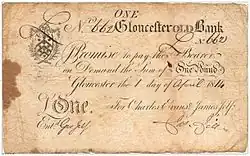 ONE
No. 662 Gloucester OLD Bank
No. 662
I Promise to pay the Bearer
on Demand the Sum of One Pound
Gloucester the 1 day of April 1814
£One. For Charles Evans & James Jelf
Entd.